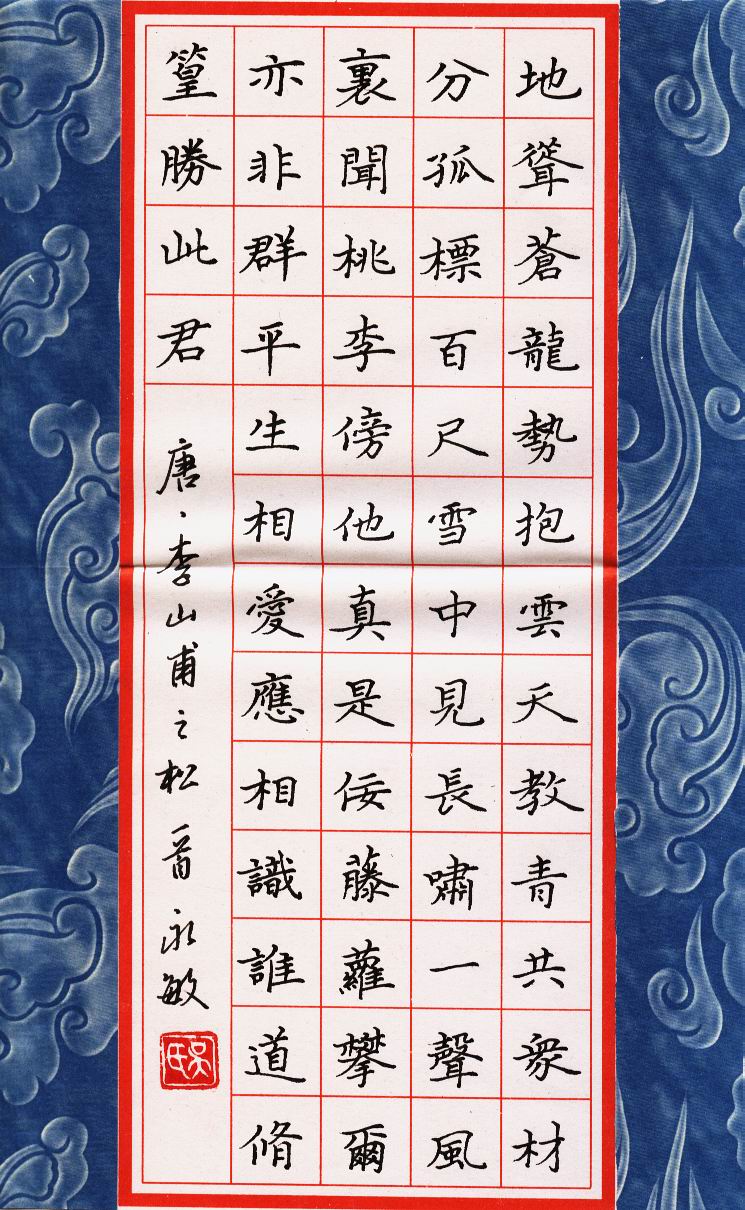 地聳蒼龍勢抱雲天教青共衆材
分孤標百尺雪中見長嘯一聲風
裏聞桃李傍他真是佞藤蘿攀爾
亦非群平生相愛應相識誰道脩
篁勝此君 唐、李山甫之松一首 永敏
吳氏